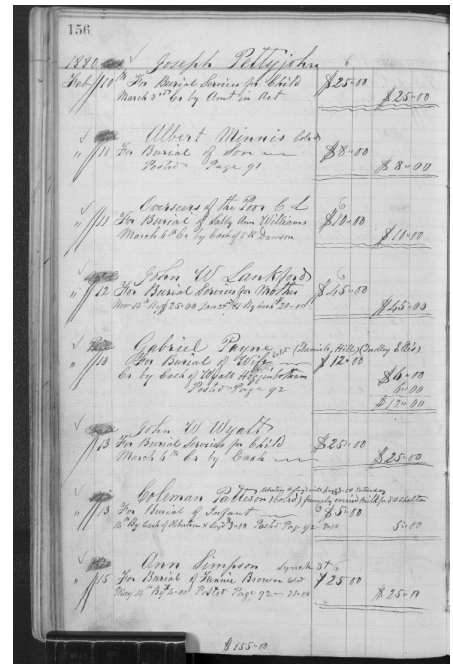 156
1880 Joseph Pettyjohn 6
Feb 10th For Burial Services for Child $25.00
March 3rd Cr by Amt in Act $25.00
Albert Minnis Cold
" 11 For Burial of Son $8.00
Posted Page 91 $8.00
Overseers of the Poor C L 6
" 11 For Burial of Sally Ann Williams $10.00
March 6th Cr by Cash of Dawson $10.00
John W Lankford 6
" 12 For Burial Services for Mother $45.00
Nov 13th By 25.00 Jan by Cash 20.00 $45.00
Gabriel Payne Cold (Daniels Hill) (Dudley Ellis)
" 13 For Burial of Wife $12.00
Cr by Cash of Wyatt Higginbotham $6.00
Posted Page 92 6.00
$12.00
John W Wyatt
" 13 For Burial Services for Child $25.00
March 6th Cr by Cash $25.00
Coleman Patteson (Cold) formerly carried Mail for Shelton
" 13 For Burial of Infant 6 $5.00
14th By Cash of Robertson 3.00 Posted Page 92 2.00 5.00
Ann Simpson Lynch St 6
" 15 For Burial of Fannie Brown Cold $25.00
May 14th By 4.00 Posted Page 92 21.00 $25.00
$155.00